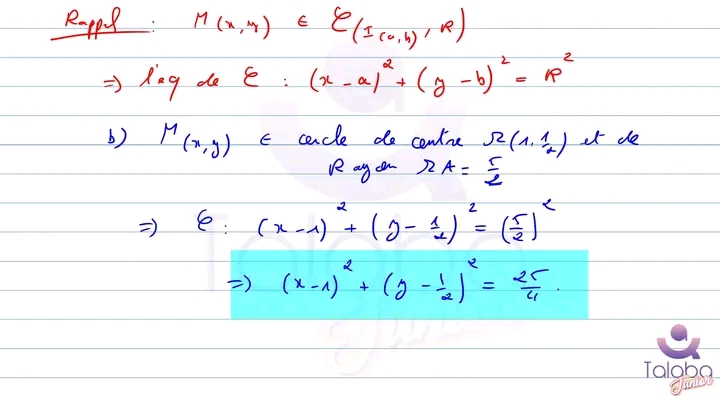 Rappel : M(x,y) ∈ C(I(a,b), R)
=> l'eq de C : (x - a)² + (y - b)² = R²
b) M(x,y) ∈ cercle de centre Ω(1, 1/2) et de
Rayon ΩA = 5/2
=> C : (x - 1)² + (y - 1/2)² = (5/2)²
=> (x - 1)² + (y - 1/2)² = 25/4.
Talaba
Junior